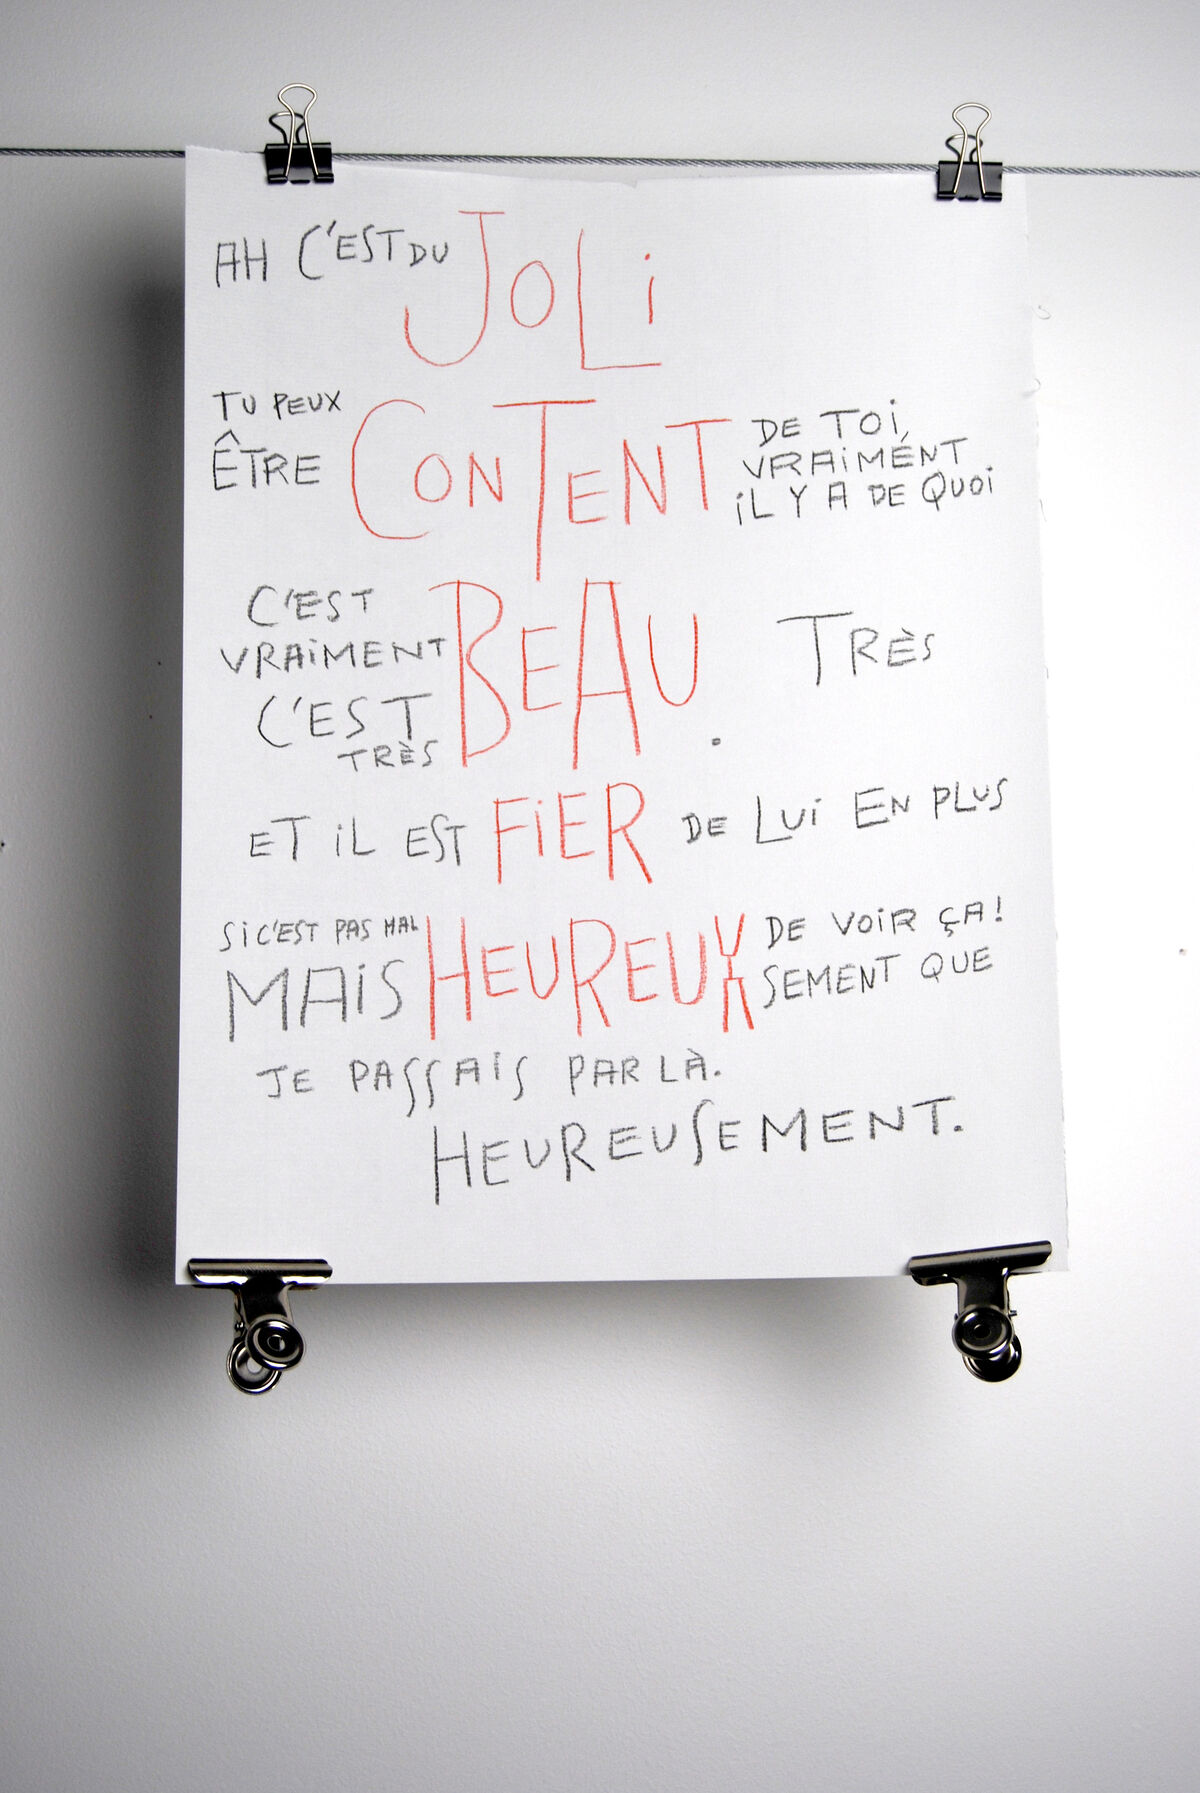 AH C'EST DU JOLi
TU PEUX
ÊTRE CONTENT DE TOi,
VRAiMENT
iL Y A DE QUOi
C'EST
VRAiMENT
C'EST
TRÈS BEAU. TRÈS
ET iL EST FiER DE LUi EN PLUS
Si C'EST PAS MAL
MAiS HEUREUX DE VOiR ÇA!
SEMENT QUE
JE PASSAiS PAR LÀ.
HEUREUSEMENT.